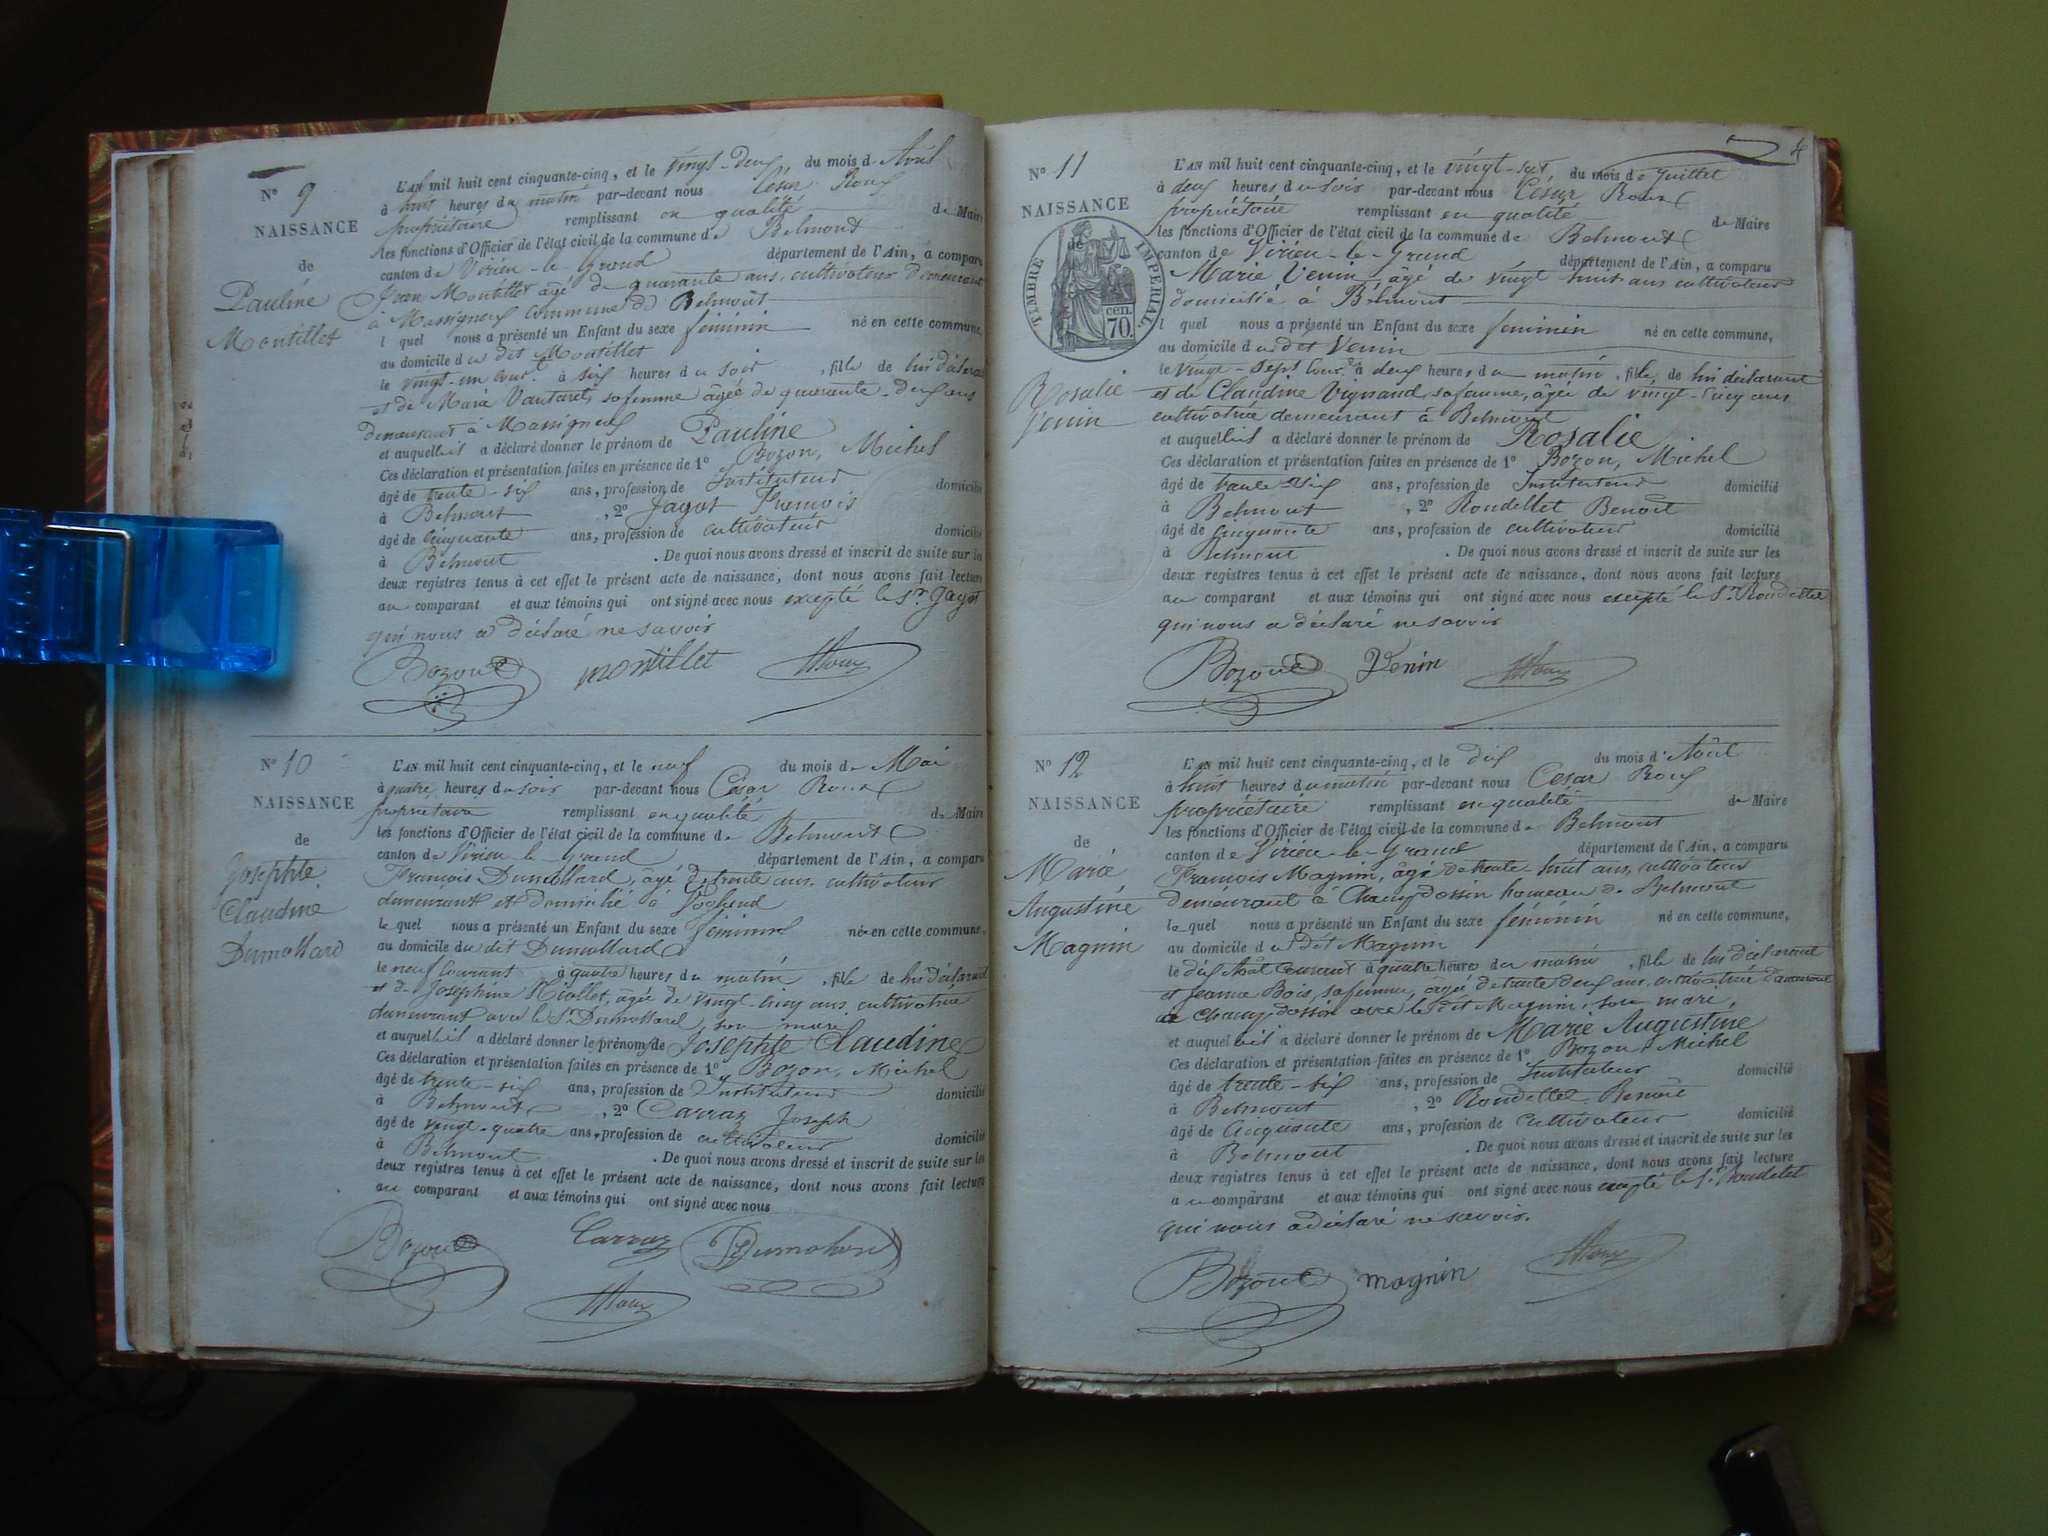 N° 9
NAISSANCE
de
Pauline
Montillet
L'AN mil huit cent cinquante-cinq, et le vingt-deux du mois d'Avril
à huit heures du matin par-devant nous César Roux
propriétaire remplissant en qualité de Maire
les fonctions d'Officier de l'état civil de la commune de Belmont
canton de Virieu-le-Grand département de l'Ain, a comparu
Jean Montillet âgé de quarante ans, cultivateur demeurant
à Massignieu commune de Belmont
l quel nous a présenté un Enfant du sexe féminin né en cette commune,
au domicile du dit Montillet
le vingt-un cour.t à six heures du soir, fille de lui déclarant
et de Marie Vautaret, sa femme âgée de quarante-deux ans
demeurant à Massignieu
et auquel il a déclaré donner le prénom de Pauline
Ces déclaration et présentation faites en présence de 1° Bozon, Michel
âgé de trente-six ans, profession de Instituteur domicilié
à Belmont, 2° Jagot François
âgé de cinquante ans, profession de cultivateur domicilié
à Belmont. De quoi nous avons dressé et inscrit de suite sur les
deux registres tenus à cet effet le présent acte de naissance, dont nous avons fait lecture
au comparant et aux témoins qui ont signé avec nous excepté le Sr Jagot
qui nous a déclaré ne savoir
Bozon montillet Roux
N° 10
NAISSANCE
de
Josephte
Claudine
Dumollard
L'AN mil huit cent cinquante-cinq, et le neuf du mois de Mai
à quatre heures du soir par-devant nous César Roux
propriétaire remplissant en qualité de Maire
les fonctions d'Officier de l'état civil de la commune de Belmont
canton de Virieu-le-Grand département de l'Ain, a comparu
François Dumollard, âgé de trente ans, cultivateur
demeurant et domicilié à
le quel nous a présenté un Enfant du sexe féminin né en cette commune,
au domicile du dit Dumollard
le neuf courant à quatre heures du matin, fille de lui déclarant
et de Josephine âgée de vingt-cinq ans, cultivatrice
demeurant avec le Sr Dumollard, son mari
et auquel il a déclaré donner le prénom de Josephte Claudine
Ces déclaration et présentation faites en présence de 1° Bozon, Michel
âgé de trente-six ans, profession de Instituteur domicilié
à Belmont, 2° Carraz Joseph
âgé de vingt-quatre ans, profession de cultivateur domicilié
à Belmont. De quoi nous avons dressé et inscrit de suite sur les
deux registres tenus à cet effet le présent acte de naissance, dont nous avons fait lecture
au comparant et aux témoins qui ont signé avec nous
Bozon Carraz Dumolard
Roux
4
N° 11
NAISSANCE
de
TIMBRE IMPERIAL
70 cen.
Rosalie
Venin
L'AN mil huit cent cinquante-cinq, et le vingt-sept du mois de Juillet
à deux heures du soir par-devant nous César Roux
propriétaire remplissant en qualité de Maire
les fonctions d'Officier de l'état civil de la commune de Belmont
canton de Virieu-le-Grand département de l'Ain, a comparu
Marie Venin, âgé de vingt huit ans cultivateur
domicilié à Belmont
l quel nous a présenté un Enfant du sexe féminin né en cette commune,
au domicile du dit Venin
le vingt-sept cour.t à deux heures du matin, fille, de lui déclarant
et de Claudine Vignand, sa femme, âgée de vingt-cinq ans
cultivatrice demeurant à Belmont
et auquel il a déclaré donner le prénom de Rosalie
Ces déclaration et présentation faites en présence de 1° Bozon, Michel
âgé de trente six ans, profession de Instituteur domicilié
à Belmont, 2° Rondellet Benoît
âgé de cinquante ans, profession de cultivateur domicilié
à Belmont. De quoi nous avons dressé et inscrit de suite sur les
deux registres tenus à cet effet le présent acte de naissance, dont nous avons fait lecture
au comparant et aux témoins qui ont signé avec nous excepté le Sr Rondellet
qui nous a déclaré ne savoir
Bozon Venin Roux
N° 12
NAISSANCE
de
Marie
Augustine
Magnin
L'AN mil huit cent cinquante-cinq, et le dix du mois d'Août
à huit heures du matin par-devant nous César Roux
propriétaire remplissant en qualité de Maire
les fonctions d'Officier de l'état civil de la commune de Belmont
canton de Virieu-le-Grand département de l'Ain, a comparu
François Magnin, âgé de trente-huit ans, cultivateur
demeurant à Champdossin hameau de Belmont
le quel nous a présenté un Enfant du sexe féminin né en cette commune,
au domicile du dit Magnin
le dix Août courant à quatre heures du matin, fille de lui déclarant
et Jeanne Bois, sa femme, âgée de trente deux ans, cultivatrice demeurant
à Champdossin avec le dit Magnin, son mari,
et auquel il a déclaré donner le prénom de Marie Augustine
Ces déclaration et présentation faites en présence de 1° Bozon, Michel
âgé de trente-six ans, profession de Instituteur domicilié
à Belmont, 2° Rondellet Benoît
âgé de cinquante ans, profession de cultivateur domicilié
à Belmont. De quoi nous avons dressé et inscrit de suite sur les
deux registres tenus à cet effet le présent acte de naissance, dont nous avons fait lecture
au comparant et aux témoins qui ont signé avec nous excepté le Sr Rondelet
qui nous a déclaré ne savoir.
Bozon magnin Roux